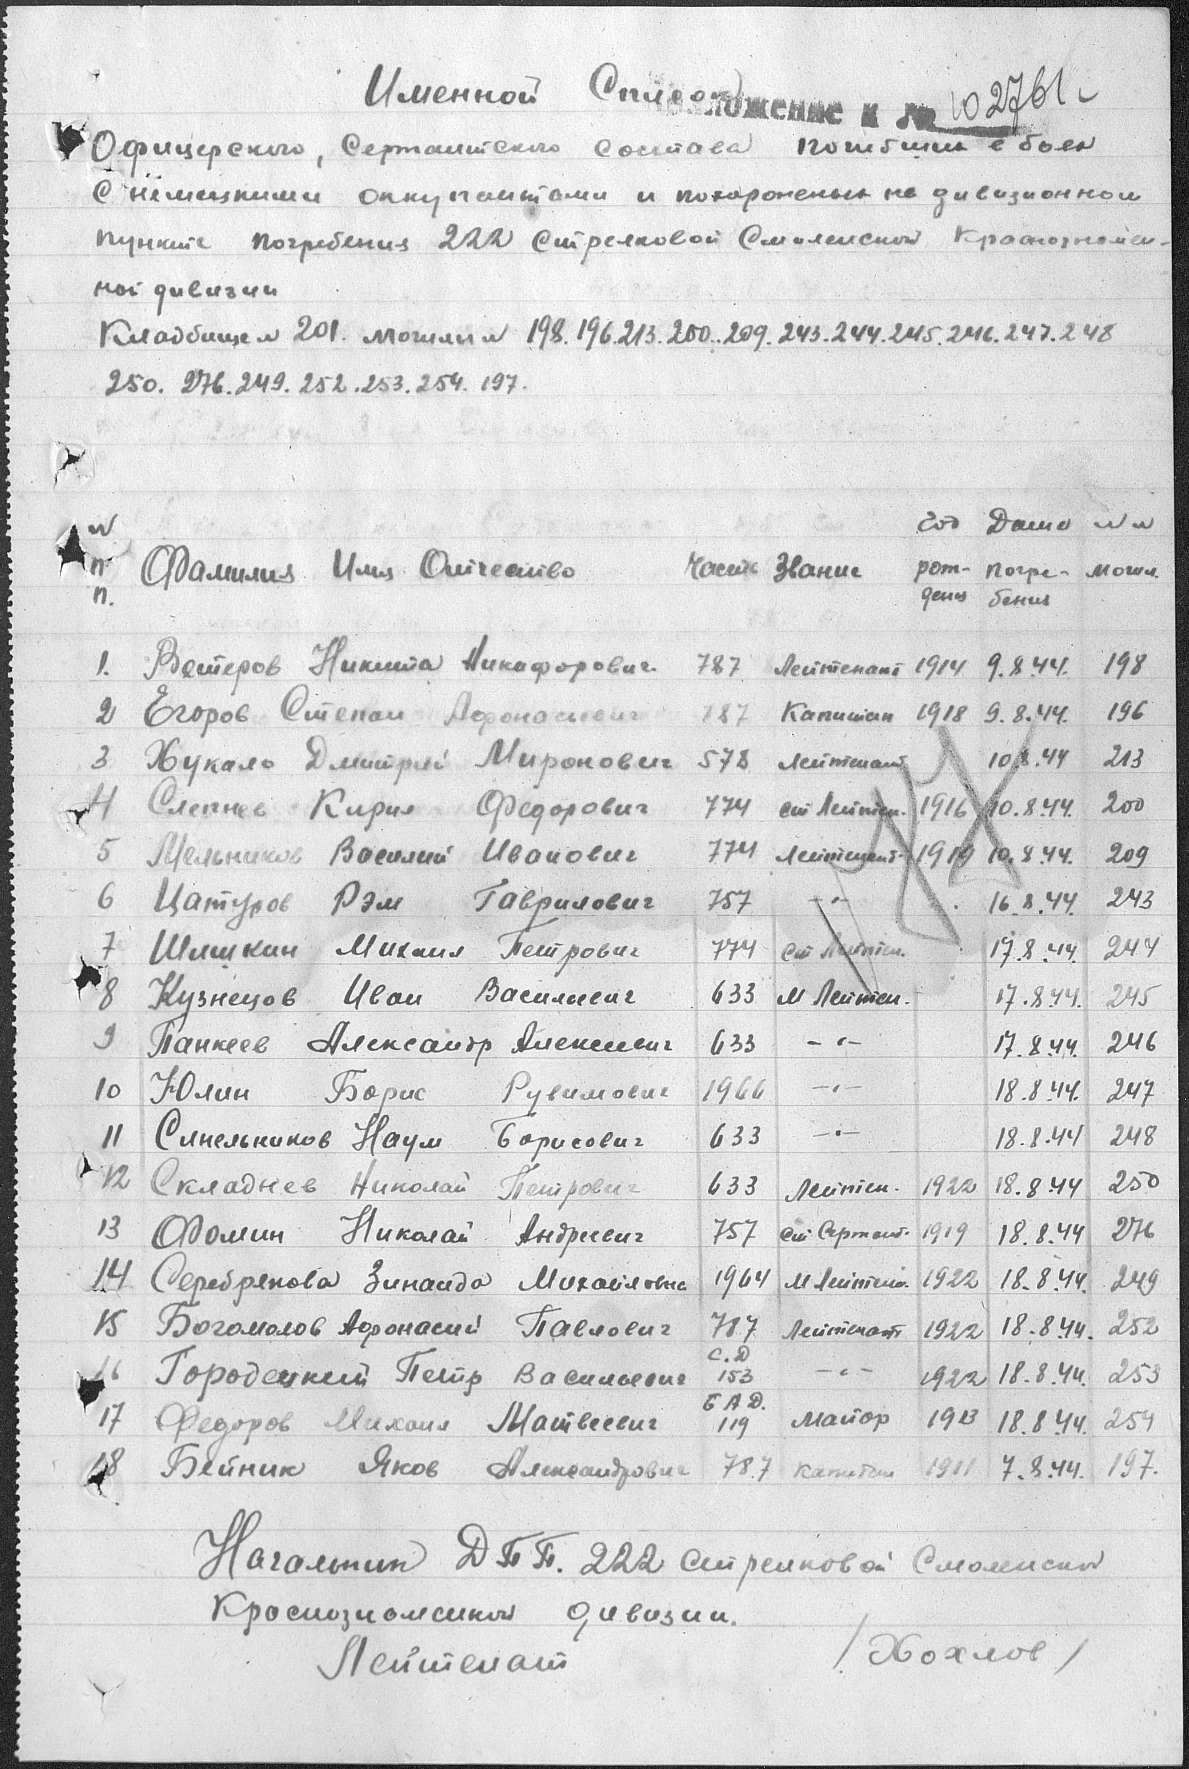 Именной Список
Приложение к № 102761с
Офицерского, Сержантского состава погибших в боях
с немецкими оккупантами и похороненых на дивизионном
пункте погребения 222 стрелковой Смоленской Краснознамен-
ной дивизии
Кладбище № 201. могилы № 198. 196. 213. 200. 209. 243. 244. 245. 246. 247. 248
250. 276. 249. 252. 253. 254. 197.
№ п п. Фамилия Имя Отчество Часть Звание год рож-дения Дата погре-бения №№ могил.
1. Ветеров Никита Никифорович 787 Лейтенант 1914 9.8.44. 198
2 Егоров Степан Афонасьевич 787 Капитан 1918 9.8.44. 196
3 Хукало Дмитрий Миронович 578 Лейтенант 10.8.44 213
4 Слепнев Кирил Федорович 774 ст Лейтен. 1916 10.8.44. 200
5 Мельников Василий Иванович 774 Лейтенант 1919 10.8.44. 209
6 Цатуров Рэм Гаврилович 757 -"- 16.8.44. 243
7 Шишкин Михаил Петрович 774 ст Лейтен. 17.8.44. 244
8 Кузнецов Иван Васильевич 633 м Лейтен. 17.8.44. 245
9 Панкеев Александр Алексеевич 633 -"- 17.8.44. 246
10 Юлин Борис Рувимович 1966 -"- 18.8.44. 247
11 Синельников Наум Борисович 633 -"- 18.8.44 248
12 Складнев Николай Петрович 633 Лейтен. 1922 18.8.44 250
13 Фомин Николай Андреевич 757 ст Сержант. 1919 18.8.44 276
14 Серебрякова Зинаида Михайловна 1964 м Лейтена. 1922 18.8.44. 249
15 Богомолов Афонасий Павлович 787 Лейтенант 1922 18.8.44. 252
16 Городецкий Петр Васильевич С.Д 153 -"- 1922 18.8.44. 253
17 Федоров Михаил Матвеевич Б А Д. 119 Майор 1913 18.8.44. 254
18 Бейник Яков Александрович 787 капитан 1911 7.8.44. 197.
Начальник ДПП. 222 стрелковой Смоленской
Краснознаменной дивизии.
Лейтенант / Хохлов /